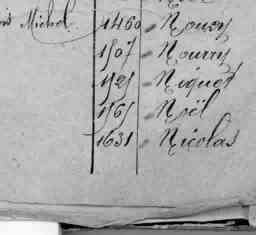 Michel 1460 Noury
1507 Nourry
Niquet
1565 Noël
1631 Nicolas